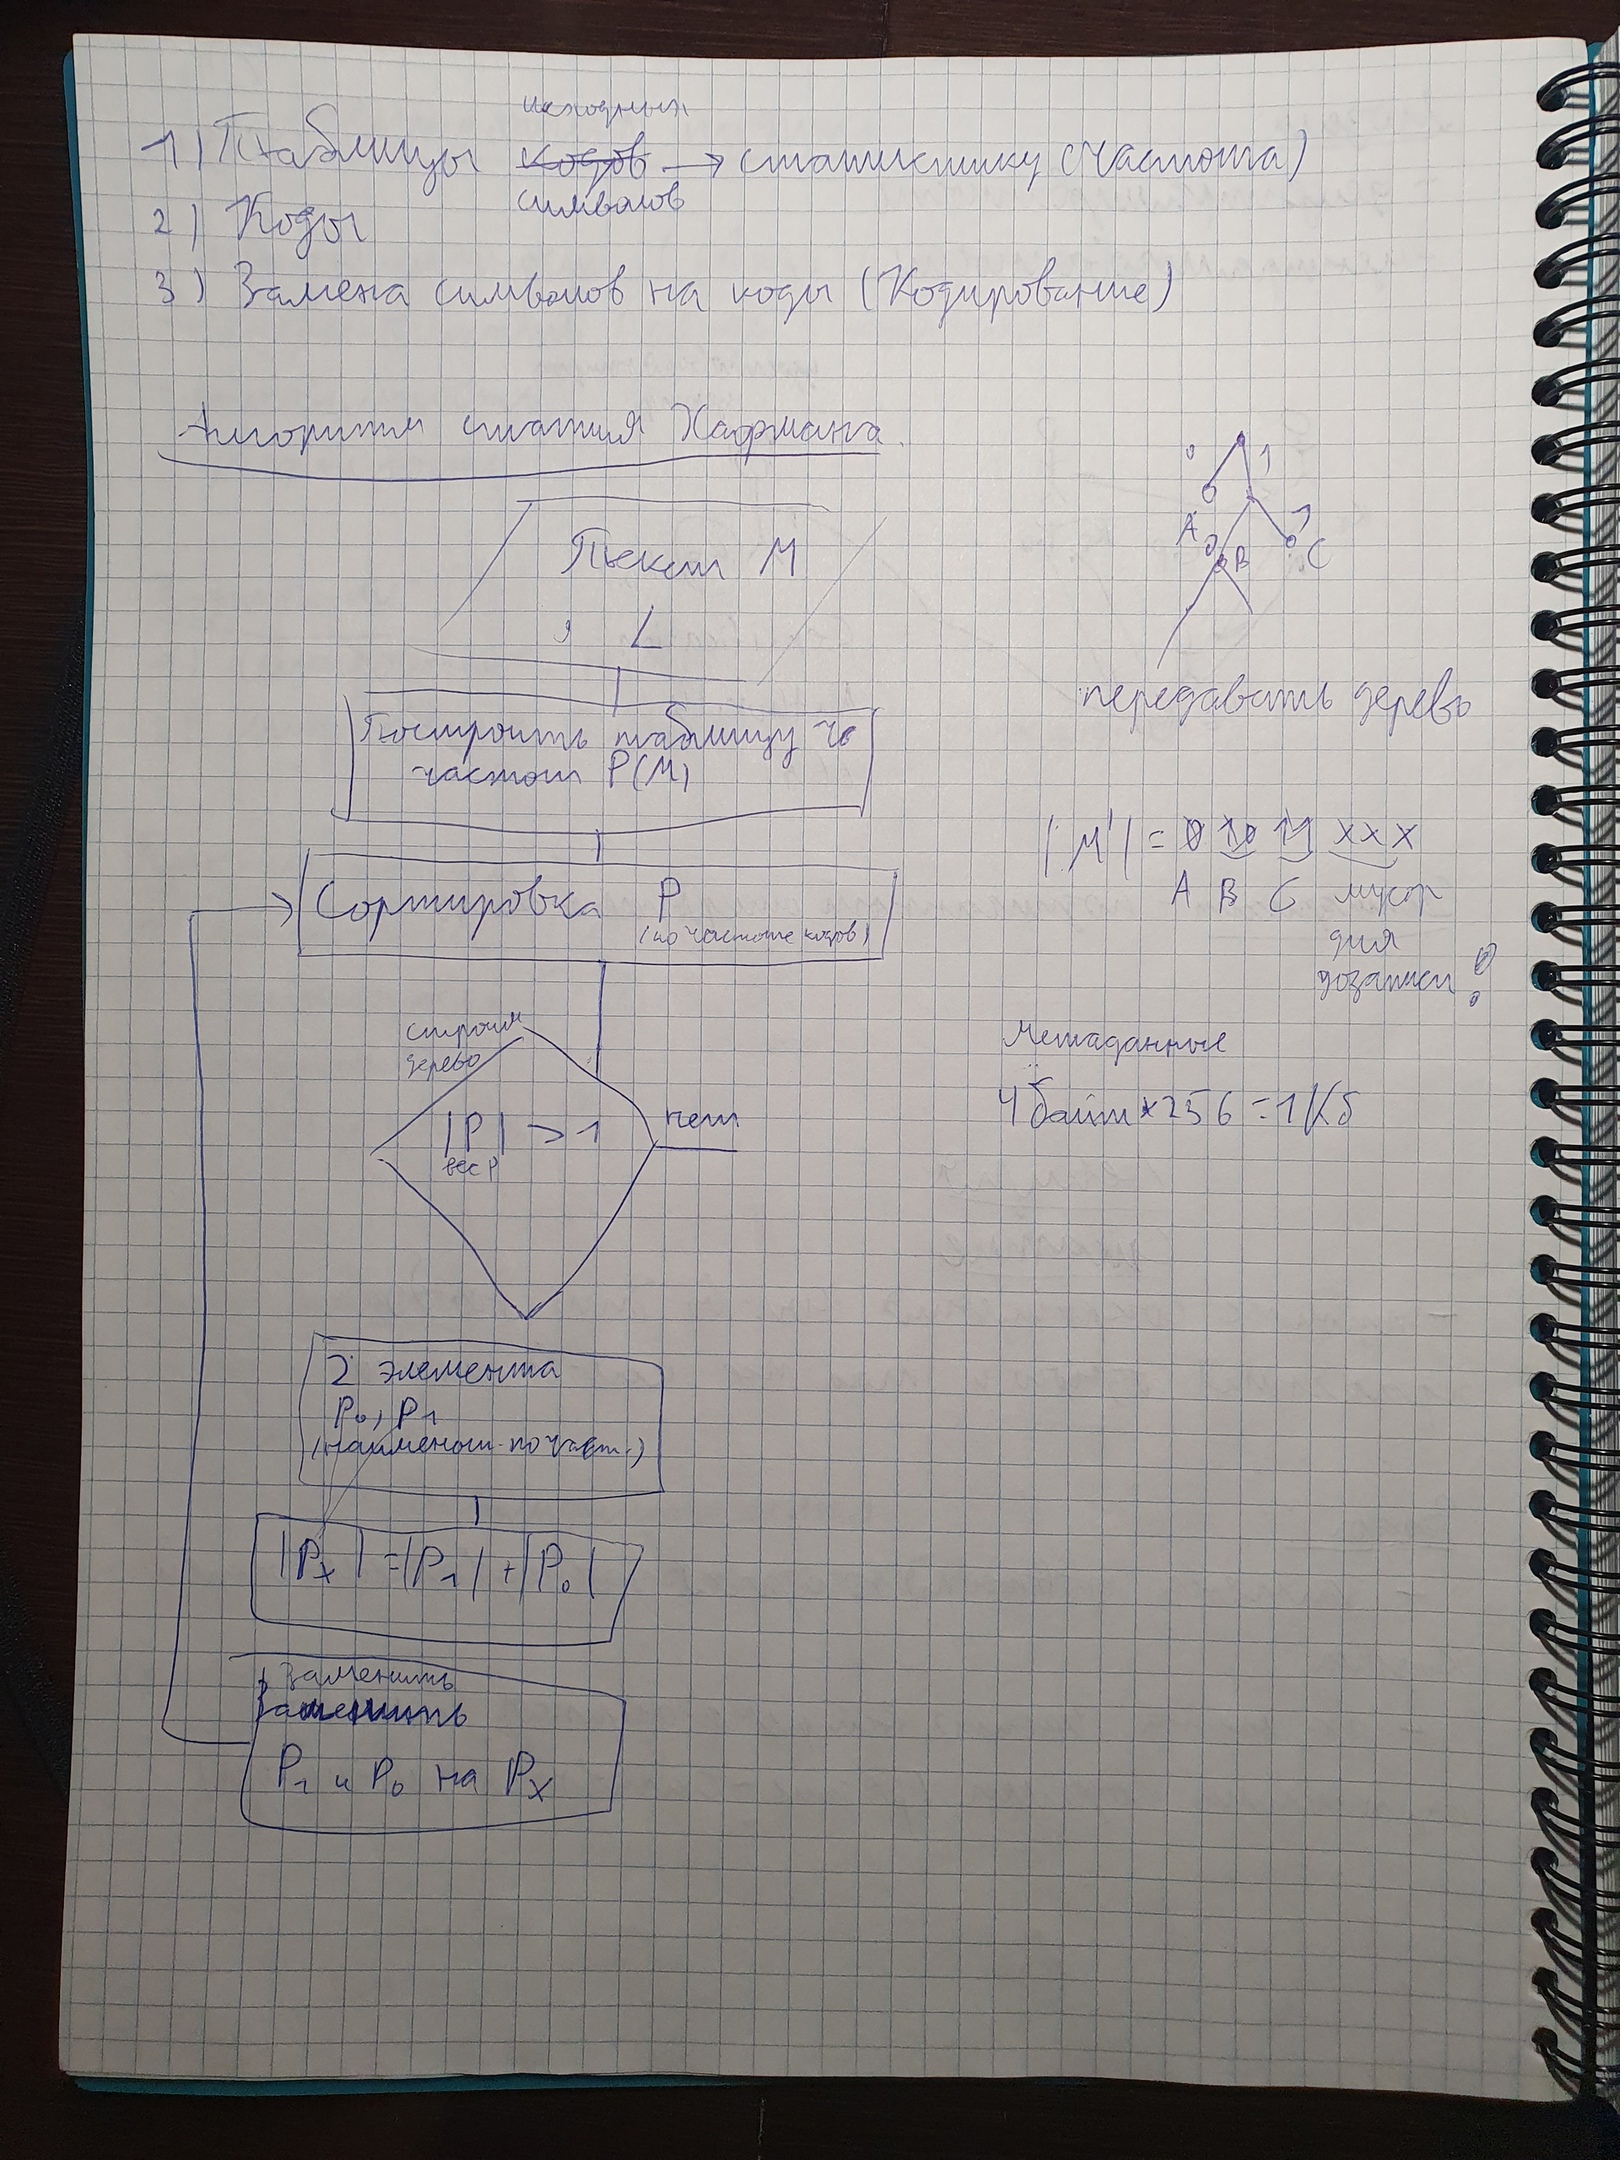 исходных
1) Таблицы кодов → статистику (частота)
символов
2) Коды
3) Замена символов на коды (Кодирование)
Алгоритм сжатия Хафмана.
Текст M
L
Построить таблицу ча
частот P(M)
Сортировка P
(по частоте кодов)
строим
дерево
|P| > 1
вес P
нет
2 элемента
P₀, P₁
(наименьш. по част.)
|Pₓ| = |P₁| + |P₀|
Заменить
Заменить
P₁ и P₀ на Pₓ
0 1
A 0 B 1 C
передавать дерево
|M'| = 0 10 11 x x x
A B C мусор
для
дозаписи !
Метаданные
4 байт x 256 = 1 Кб